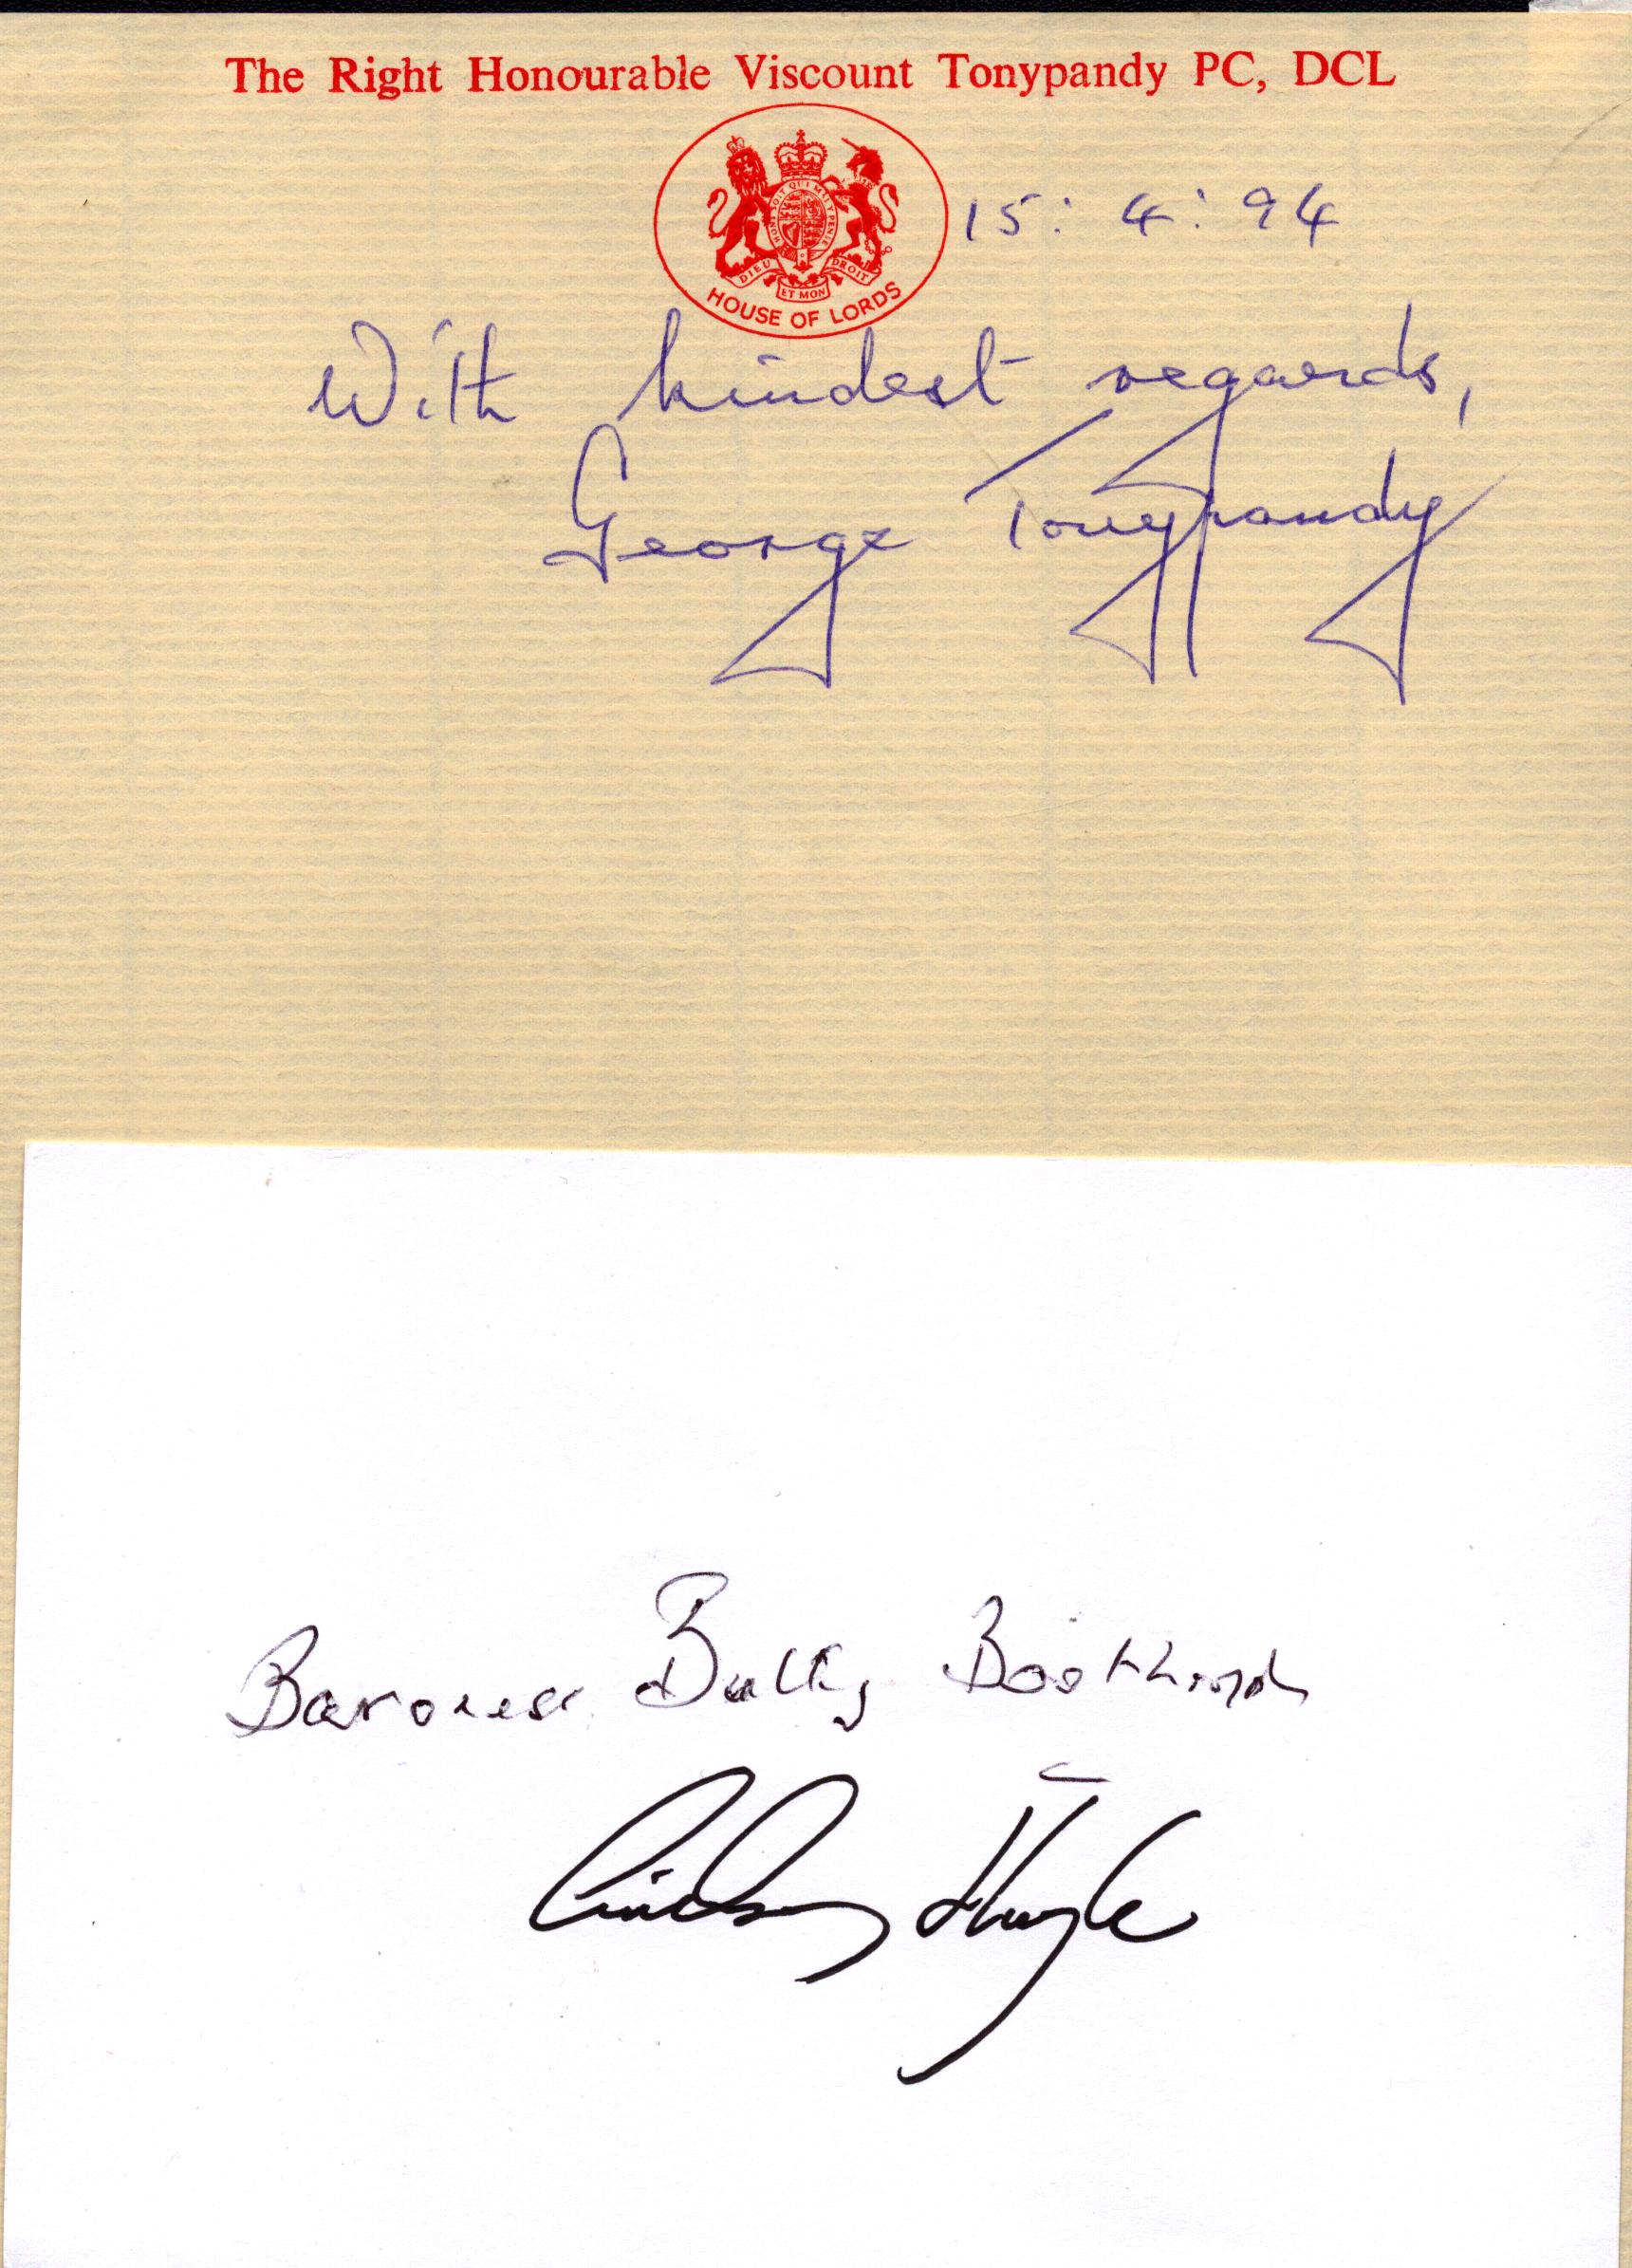 The Right Honourable Viscount Tonypandy PC, DCL
HONI SOIT QUI MAL Y PENSE
DIEU ET MON DROIT
HOUSE OF LORDS
15 : 4 : 94
With kindest regards,
George Tonypandy
Baroness Betty Boothroyd
Lindsay Hoyle